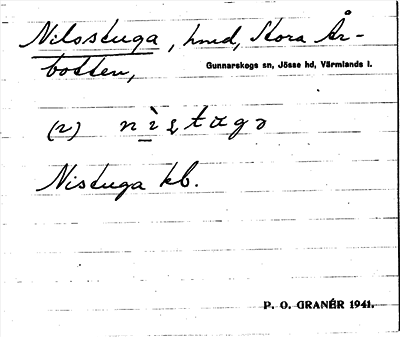 Nilsstuga, hmd, Stora År-
botten,
Gunnarskogs sn, Jösse hd, Värmlands l.
(2)
Nistuga kb.
P. O. GRANÉR 1941.